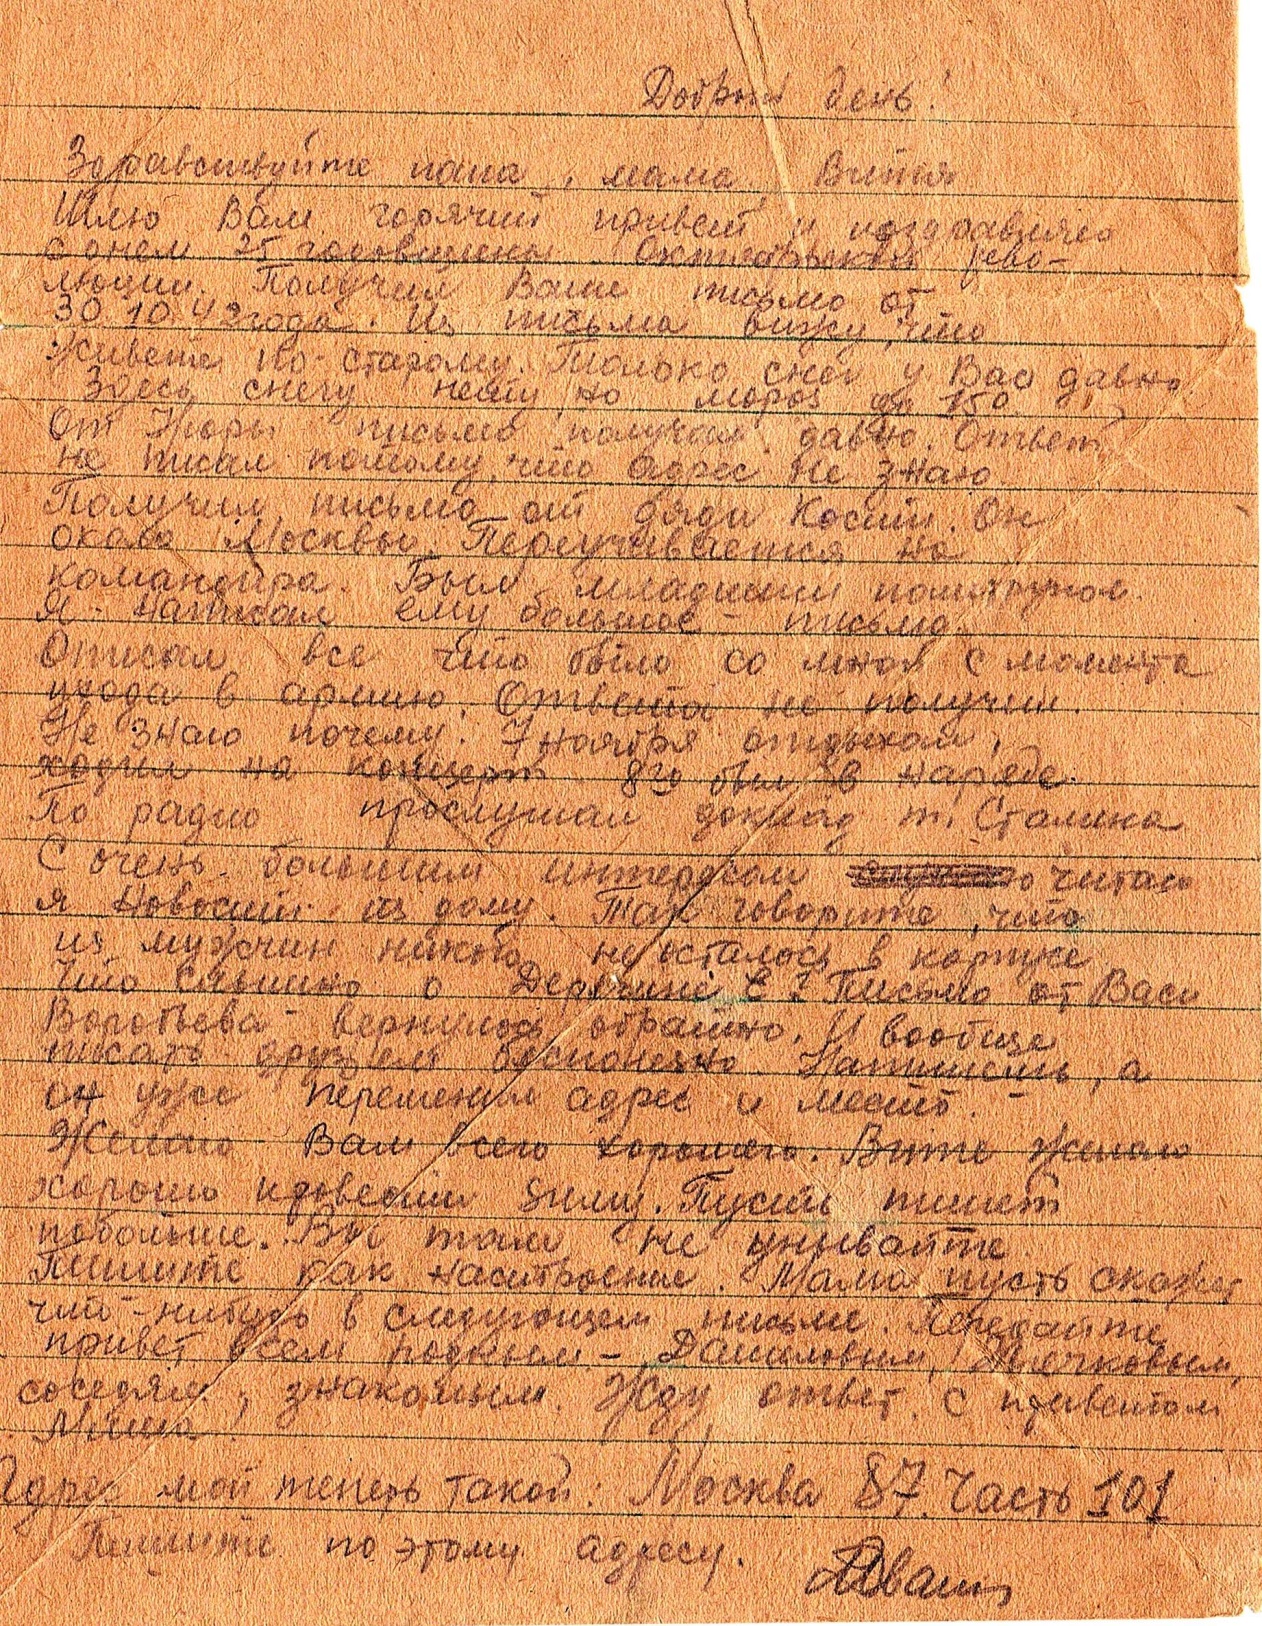 Добрый день!
Здравствуйте папа, мама Витя
Шлю Вам горячий привет и поздравляю
с днем 25 годовщины Октябрьской рево-
люции. Получил Ваше письмо от
30 10 42 года. Из письма вижу, что
живете по-старому. Только снег у Вас давно
Здесь снегу нету, но мороз до 15°.
От письмо получил давно. Ответ
не писал потому, что адрес не знаю.
Получил письмо от дяди Кости. Он
около Москвы. Переучивается на
командира. Был младшим политруком.
Я написал ему большое - письмо.
Описал все что было со мной с момента
ухода в армию. Ответа не получил.
Не знаю почему. 7 ноября отдыхал,
ходил на концерт 8го был в наряде.
По радио прослушал доклад т. Сталина
С очень большим интересом читаю
я новости из дому. Так говорите, что
из мужчин никого не осталось в корпусе
Что слышно о Е? Письмо от Васи
Воробьева - вернулось обратно. И вообще
писать друзьям бесполезно. Напишешь, а
он уже переменил адрес и место. -
Желаю Вам всего хорошего. Вите желаю
хорошо провести зиму. Пусть пишет
побольше. Вы там не унывайте.
Пишите как настроение. Мама пусть скажет
что-нибудь в следующем письме. Передайте
привет всем родным - Даниловым,
соседям, знакомым. Жду ответ. С приветом
Миша.
Адрес мой теперь такой: Москва 87. Часть 101
Пишите по этому адресу.